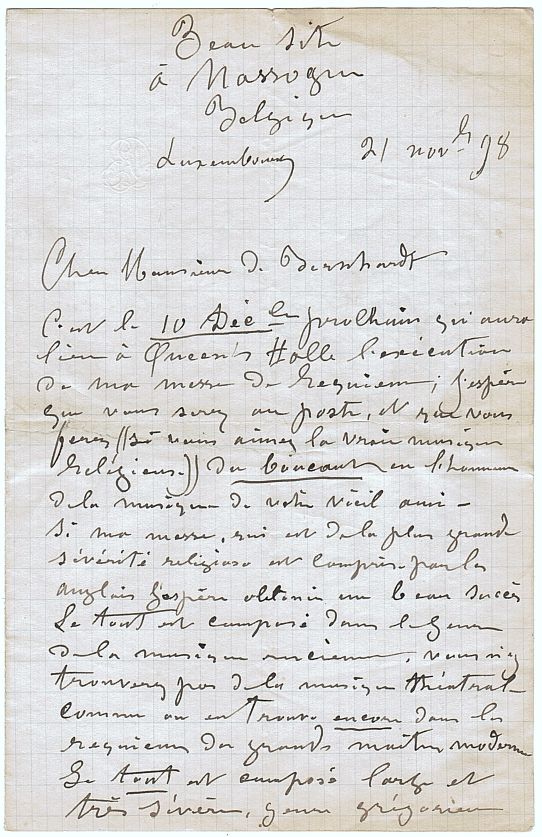 Beau Site
à Nassogne
Belgique
Luxembourg 21 novb 98
Cher Monsieur de Bernhardt
C'est le 10 Déc prochain qui aura
lieu à Queen's Halle l'exécution
de ma messe de Requiem; j'espère
que vous serez au poste, et que vous
ferez ((si vous aimez la vraie musique
religieuse)) du boucant en l'honneur
de la musique de votre vieil ami -
Si ma messe, qui est de la plus grande
sévérité religiose est comprise par les
anglais j'espère obtenir un beau succès
Le tout est composé dans le genre
de la musique ancienne, vous n'y
trouverez pas de la musique théatrale
comme on en trouve encore dans les
requiem des grands maîtres modernes
Le tout est composé large et
très sévère, genre grégorien